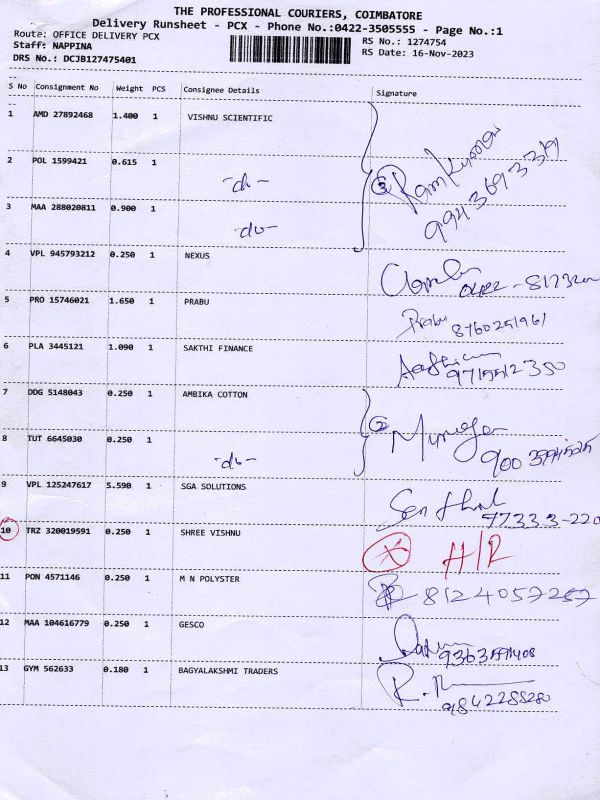 THE PROFESSIONAL COURIERS, COIMBATORE
Delivery Runsheet - PCX - Phone No.:0422-3505555 - Page No.:1
Route: OFFICE DELIVERY PCX
RS No.: 1274754
Staff: NAPPINA
RS Date: 16-Nov-2023
DRS No.: DCJB127475401
S No Consignment No Weight PCS Consignee Details Signature
1 AMD 27892468 1.400 1 VISHNU SCIENTIFIC
2 POL 1599421 0.615 1 -do-
3 Ram Kumar
9941369339
3 MAA 288020811 0.900 1 -do-
4 VPL 945793212 0.250 1 NEXUS
5 PRO 15746021 1.650 1 PRABU Prabu 8760251961
6 PLA 3445121 1.090 1 SAKTHI FINANCE
7 DDG 5148043 0.250 1 AMBIKA COTTON
2 Murugan
8 TUT 6645030 0.250 1 -do-
9 VPL 125247617 5.590 1 SGA SOLUTIONS Senthil
77333-220
10 TRZ 320019591 0.250 1 SHREE VISHNU X H/R
11 PON 4571146 0.250 1 M N POLYSTER 8124057257
12 MAA 104616779 0.250 1 GESCO
13 GYM 562633 0.180 1 BAGYALAKSHMI TRADERS
9842288280